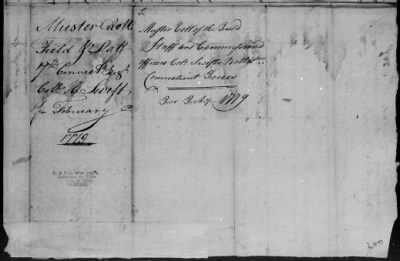 Muster Roll
Field & Staff
7th Connect. Regt
Colo. H. Swift
for February
1779
Muster Roll of the Field
Staff and Commissioned
Officers Colo. Swifts Battn.
Connecticut Forces
For Feby. 1779